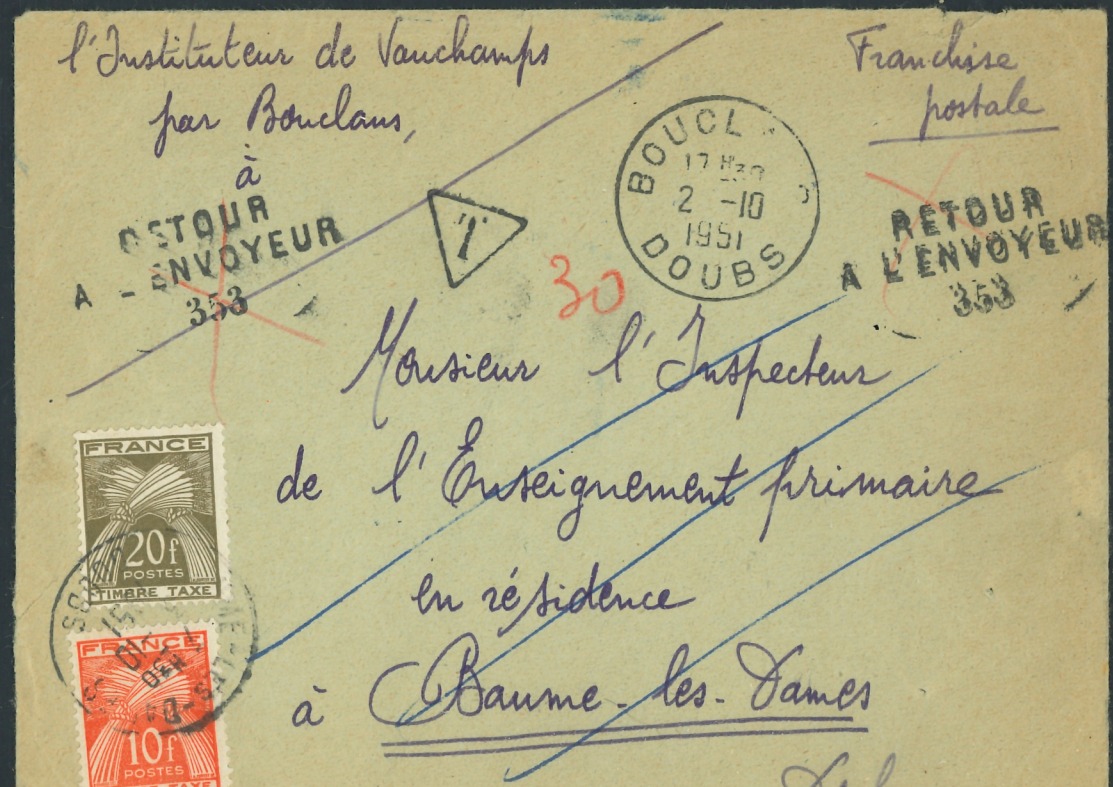 l'Instituteur de Vauchamps
par Bouclans,
à
Franchise
postale
RETOUR
A L'ENVOYEUR
353
T
BOUCL
17 H30
2 -10
1951
DOUBS
RETOUR
A L'ENVOYEUR
353
30
Monsieur l'Inspecteur
de l'Enseignement primaire
en résidence
à Baume-les-Dames
FRANCE
20f
POSTES
TIMBRE TAXE
FRANCE
10f
POSTES